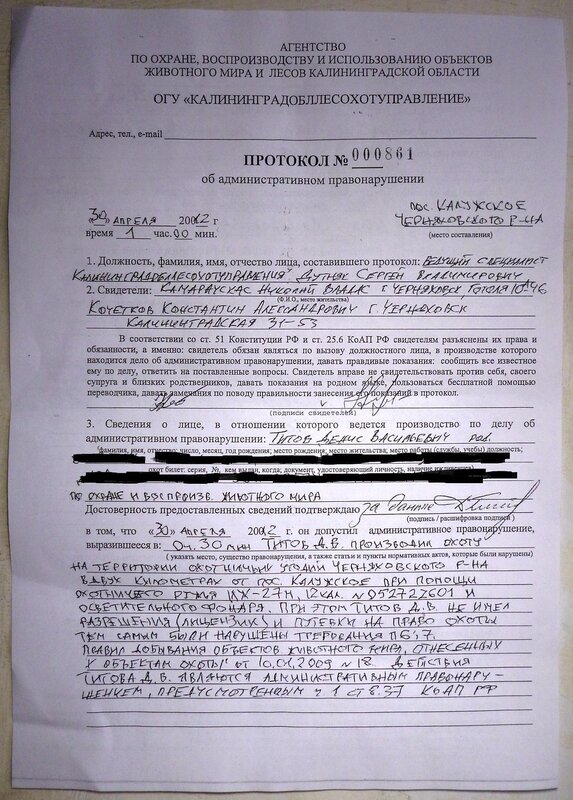 АГЕНТСТВО
ПО ОХРАНЕ, ВОСПРОИЗВОДСТВУ И ИСПОЛЬЗОВАНИЮ ОБЪЕКТОВ
ЖИВОТНОГО МИРА И ЛЕСОВ КАЛИНИНГРАДСКОЙ ОБЛАСТИ
ОГУ «КАЛИНИНГРАДОБЛЛЕСОХОТУПРАВЛЕНИЕ»
Адрес, тел., e-mail
ПРОТОКОЛ № 000861
об административном правонарушении
«30» АПРЕЛЯ 20012 г
ПОС. КАЛУЖСКОЕ
ЧЕРНЯХОВСКОГО Р-НА
время 1 час.00 мин.
(место составления)
1. Должность, фамилия, имя, отчество лица, составившего протокол: ВЕДУЩИЙ СПЕЦИАЛИСТ
СЕРГЕЙ ВЛАДИМИРОВИЧ
2. Свидетели: КАМАРАУСКАС НИКОЛАЙ ВЛАДАС Г. ЧЕРНЯХОВСК ГОГОЛЯ
(Ф.И.О., место жительства)
КОЧЕТКОВ КОНСТАНТИН АЛЕССАНДРОВИЧ Г. ЧЕРНЯХОВСК
КАЛИНИНГРАДСКАЯ 31-53
В соответствии со ст. 51 Конституции РФ и ст. 25.6 КоАП РФ свидетелям разъяснены их права и
обязанности, а именно: свидетель обязан являться по вызову должностного лица, в производстве которого
находится дело об административном правонарушении, давать правдивые показания: сообщить все известное
ему по делу, ответить на поставленные вопросы. Свидетель вправе не свидетельствовать против себя, своего
супруга и близких родственников, давать показания на родном языке, пользоваться бесплатной помощью
переводчика, давать замечания по поводу правильности занесения его показаний в протокол.
(подписи свидетелей)
3. Сведения о лице, в отношении которого ведется производство по делу об
административном правонарушении: ТИТОВ ДЕНИС ВАСИЛЬЕВИЧ
фамилия, имя, отчество; число, месяц, год рождения; место рождения; место жительства; место работы (службы, учебы) должность;
охот билет: серия, №, кем выдан, когда; документ, удостоверяющий личность,
ПО ОХРАНЕ И ВОСПРОИЗВ. ЖИВОТНОГО МИРА
Достоверность предоставленных сведений подтверждаю
(подпись / расшифровка подписи)
в том, что «30» АПРЕЛЯ 20012 г. он допустил административное правонарушение,
выразившееся в: 0ч. 30 мин ТИТОВ Д.В. ПРОИЗВОДИЛ ОХОТУ
(указать место, существо правонарушения, а также статьи и пункты нормативных актов, которые были нарушены)
НА ТЕРРИТОРИИ ОХОТНИЧЬИХ УГОДИЙ ЧЕРНЯХОВСКОГО Р-НА
В ДВУХ КИЛОМЕТРАХ ОТ ПОС. КАЛУЖСКОЕ ПРИ ПОМОЩИ
ОХОТНИЧЬЕГО РУЖЬЯ ИЖ-27М, 12 КАЛ. N 052722601 И
ОСВЕТИТЕЛЬНОГО ФОНАРЯ. ПРИ ЭТОМ ТИТОВ Д.В. НЕ ИМЕЛ
РАЗРЕШЕНИЯ (ЛИЦЕНЗИЯ) И ПУТЕВКИ НА ПРАВО ОХОТЫ
ТЕМ САМЫМ БЫЛИ НАРУШЕНЫ ТРЕБОВАНИЯ П6',7.
ПРАВИЛ ДОБЫВАНИЯ ОБЪЕКТОВ ЖИВОТНОГО МИРА, ОТНЕСЕННЫХ
К ОБЪЕКТАМ ОХОТЫ" ОТ 10,01,2009 N 18. ДЕЙСТВИЯ
ТИТОВА Д.В. ЯВЛЯЮТСЯ АДМИНИСТРАТИВНЫМ ПРАВОНАРУ-
ШЕНИЕМ, ПРЕДУСМОТРЕННЫМ Ч 1 СТ 8.37 КОАП РФ